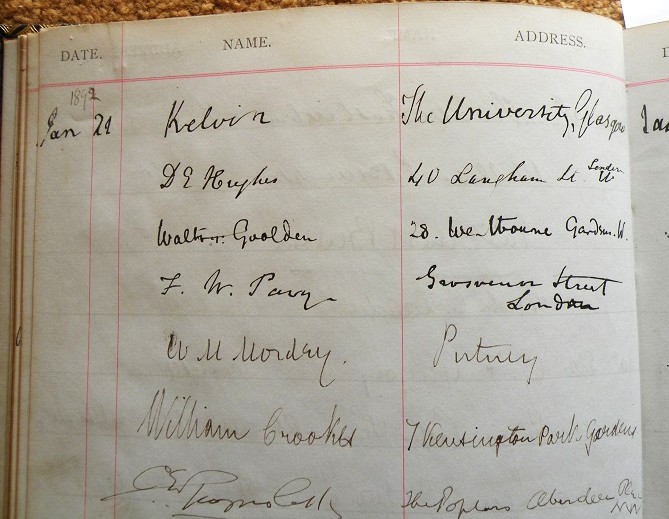 DATE. NAME. ADDRESS.
1892
Jan 21 Kelvin The University, Glasgow
D E Hughes 40 Langham St. London W
Walter Goolden 28. Westbourne Gardens. W.
F. W. Pavy Grosvenor Street
London
W M Mordey. Putney
William Crookes 7 Kensington Park Gardens
The Poplars Aberdeen
NW